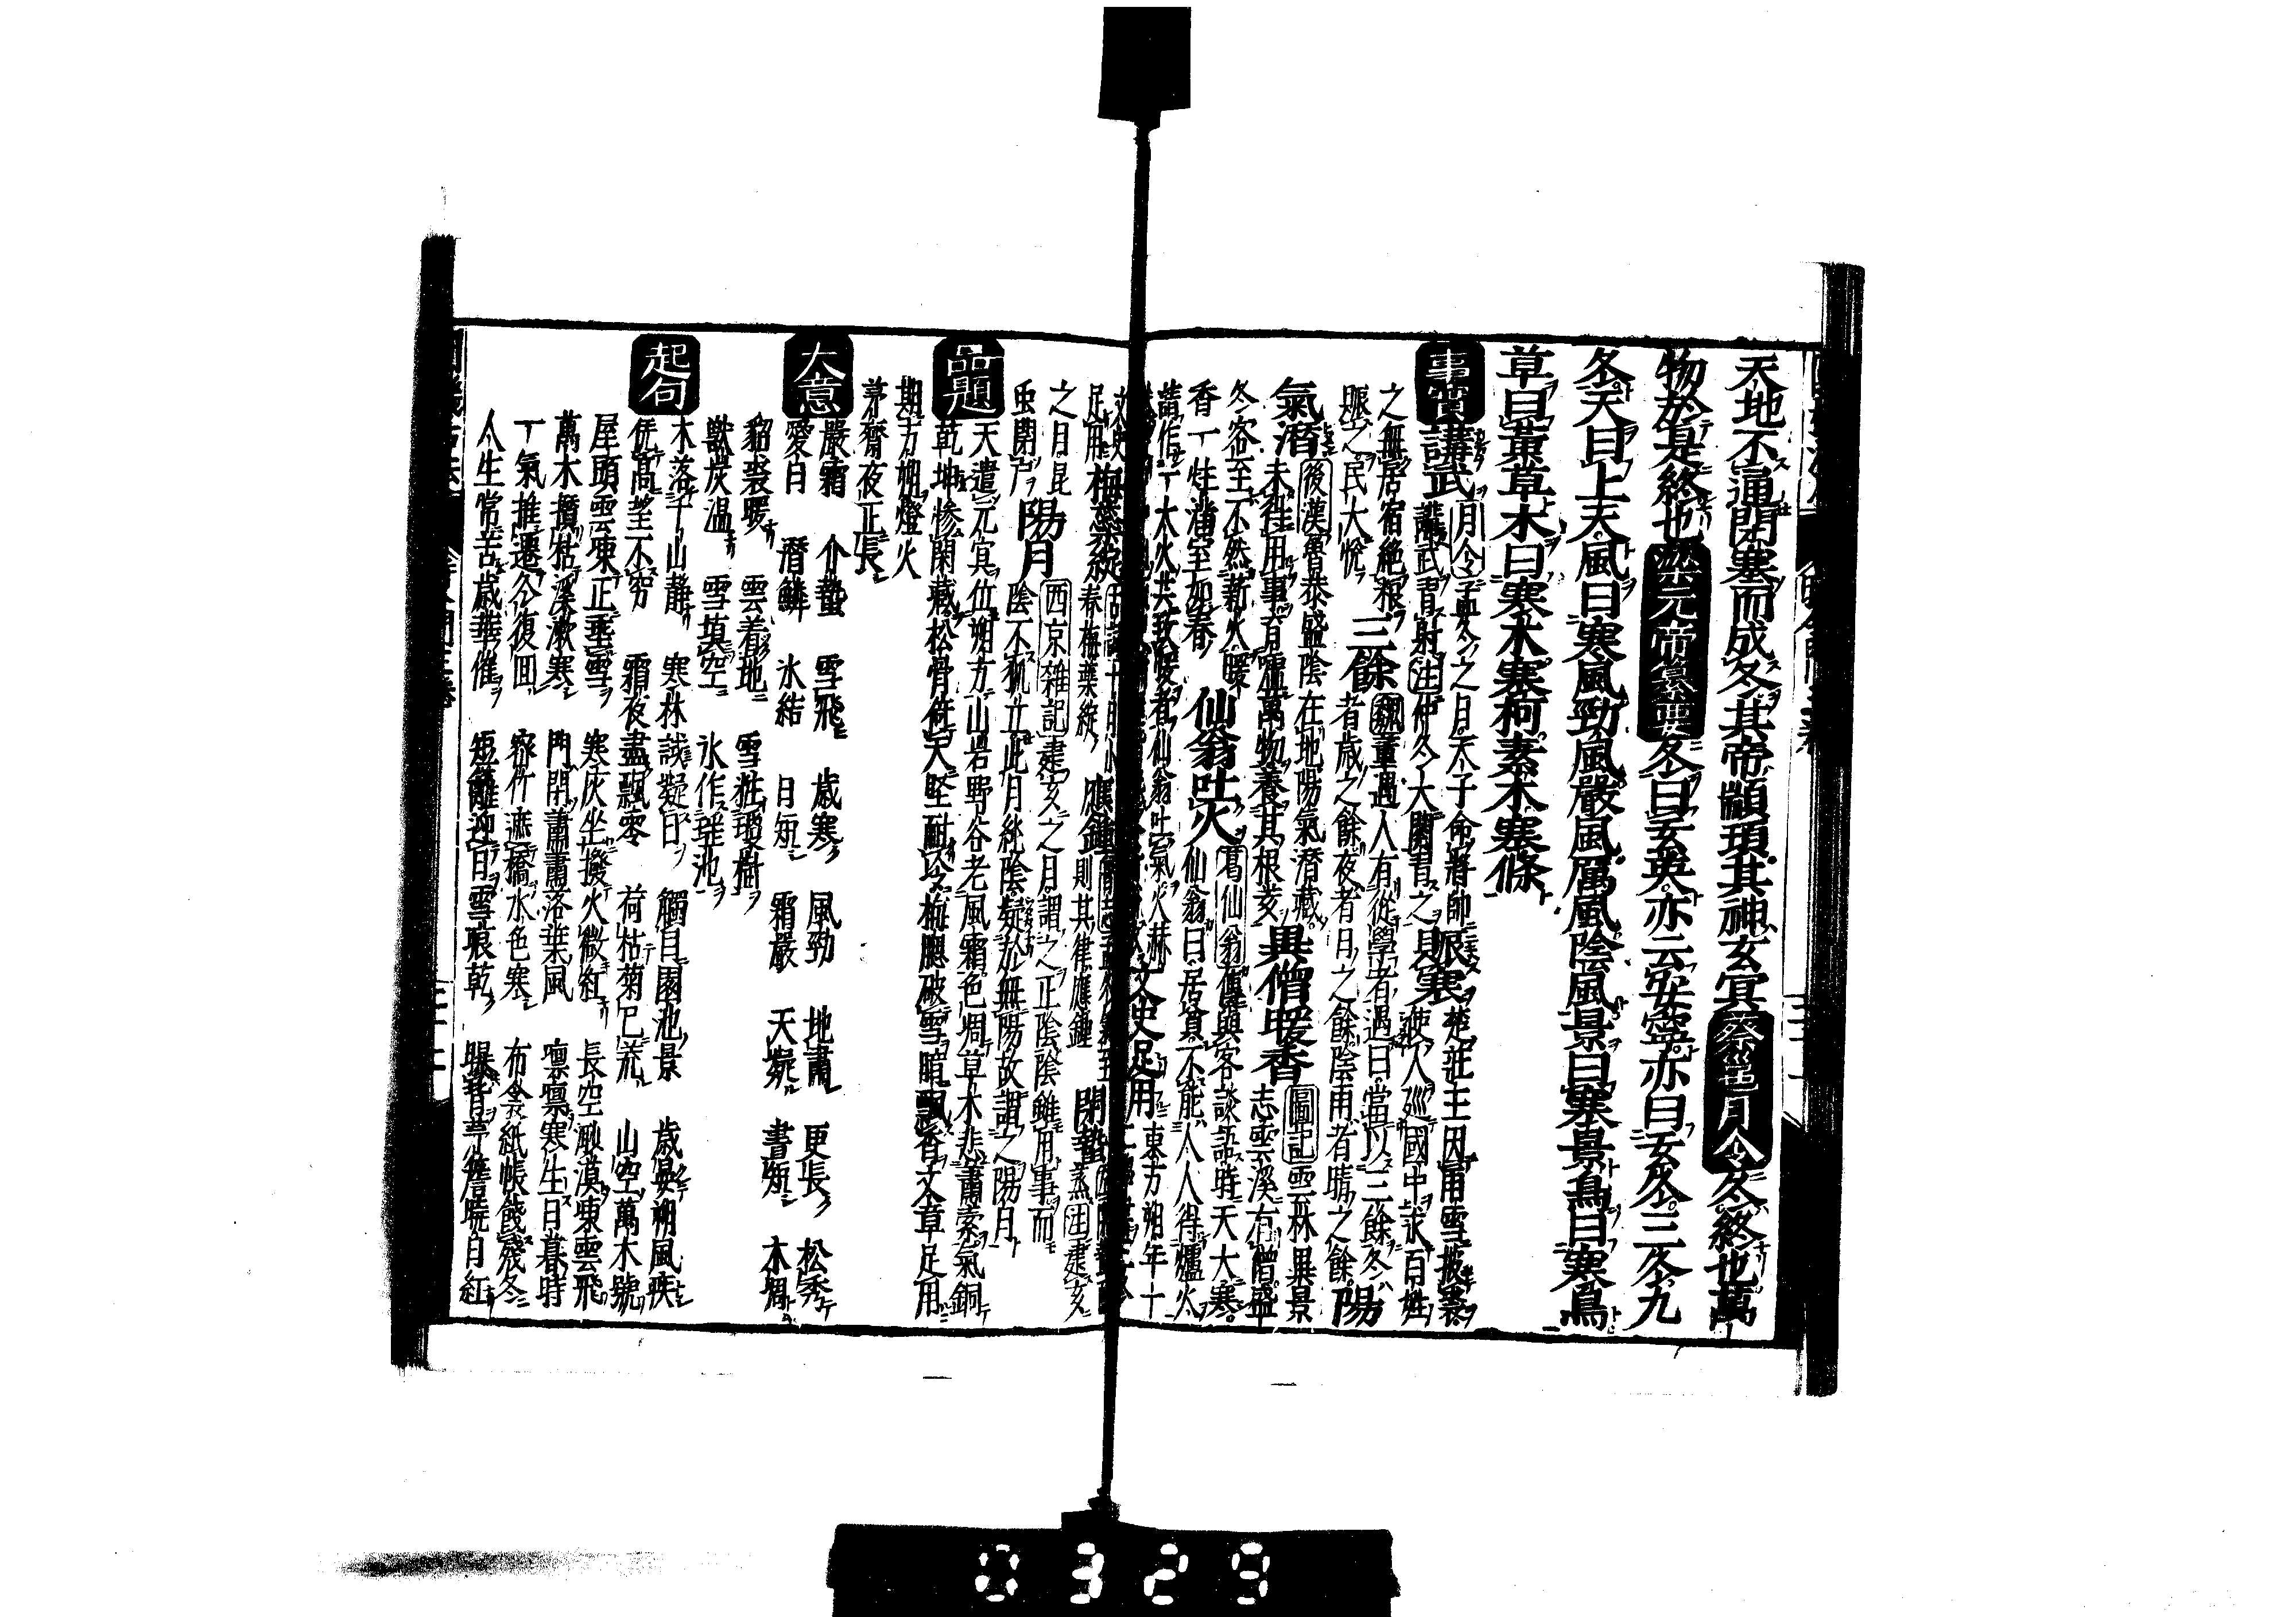 天地不通閉塞而成冬其帝顓頊其神玄冥蔡邕月令冬終也萬
物於是終也梁元帝纂要冬曰玄英亦云安寧亦曰玄冬三冬九
冬天曰上天風曰寒風勁風嚴風厲風陰風景曰寒景鳥曰寒鳥
草曰黃草木曰寒木寒柯素木寒條
事實
講武
月令孟冬之月天子命將帥
講武習射注仲冬大閱習之
賑寒
楚莊王因甫雪披裘
使人巡國中求百姓
之無居宿絶粮
賑之民大悅
三餘
魏董遇人有從學者遇曰當以三餘冬
者歲之餘夜者月之餘陰雨者晴之餘
陽
氣潛
後漢魯恭盛陰在地陽氣潛藏
未得用事育靈萬物養其根荄
異僧暖香
圖記雲林異景
志雲溪有僧盛
冬客至不然薪火暖
香一炷滿室如春
仙翁吐火
葛仙翁傳與客談語時天大寒
仙翁曰居貧不能人人得爐火
請作一大火共致煖者仙翁吐氣火赫
文史足用
東方朔年十
應鍾
則其律應鍾
閉蟄
注建亥
之月昆
虫閉户
陽月
西京雜記建亥之月謂之正陰陰雖用事而
陰不孤立此月純陰疑於無陽故謂之陽月
品題
天遣元冥位朔方山岩野谷老風霜色凋草木悲蕭索氣銅
乾坤慘閑藏松骨倚天堅耐冷梅應破雪暗飄香文章足用
期方朔燈火
茅齋夜正長
大意
嚴霜 介蟄 雪飛 歲寒 風勁 地肅 更長 松秀
愛日 潛鱗 氷結 日短 霜嚴 天凝 晝短 木凋
貂裘暖 雲着地 雪粧瓊樹
獸炭温 雪填空 氷作瑤池
起句
木落千山靜 寒林誠凝日 觸目園池景 歲晏朔風疾
凭高望不窮 霜夜盡飄零 荷枯菊已荒 山空萬木號
屋頭雲凍正垂雪 寒灰坐撥火微紅 長空漠漠凍雲飛
萬木攢枯溪漱寒 門閉蕭蕭落葉風 凛凛寒生日暮時
一氣推遷今復回 密竹遮橋水色寒 布衾紙帳餞殘冬
人生常苦歲華催 短籬迎日雪痕乾 曝背茅簷晚日紅
0329